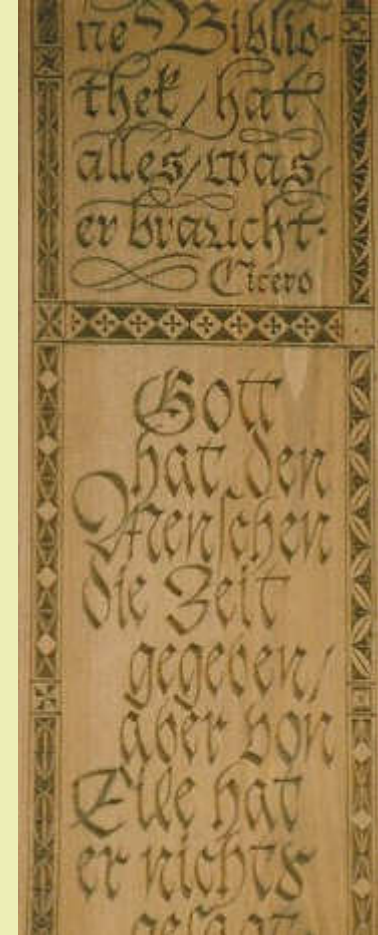 ne Biblio-
thek/hat
alles/was
er braucht.
Cicero
Gott
hat den
Menschen
die Zeit
gegeben/
aber von
Eile hat
er nichts
gesagt.